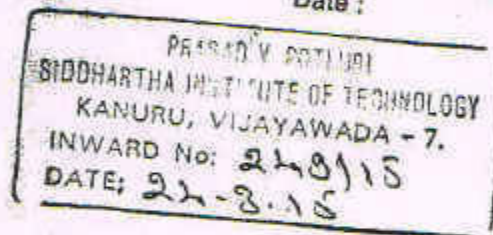 Date :
PRASAD V POTLURI
SIDDHARTHA INSTITUTE OF TECHNOLOGY
KANURU, VIJAYAWADA - 7.
INWARD No:
DATE: 22-8-15